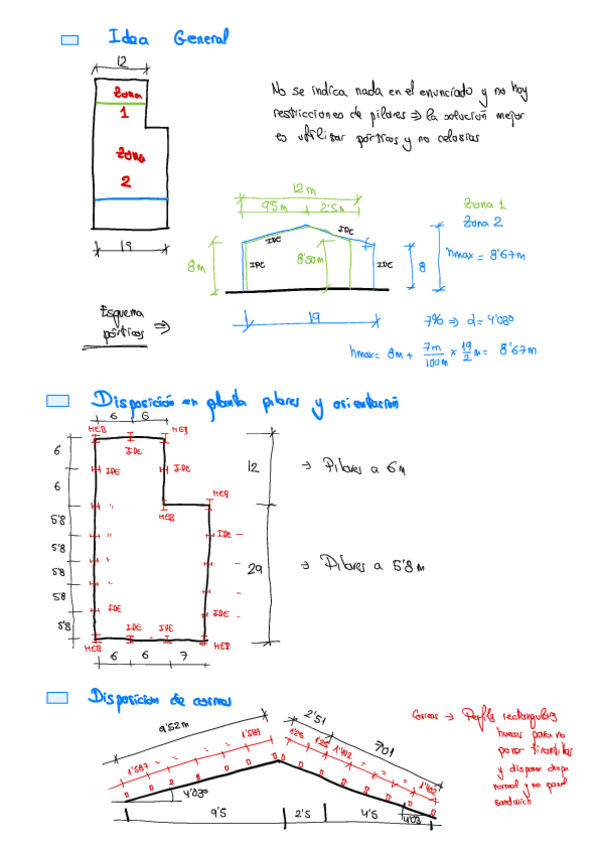 Idea General
12
Zona
1
Zona
2
19
No se indica nada en el enunciado y no hay
restricciones de pilares ⇒ la solución mejor
es utilizar pórticos y no celosías
12 m
9'5m 2'5m
IPE IPE
8m IPE 8'50m IPE 8
Zona 1
Zona 2
hmax = 8'67m
19
Esquema
pórticos ⇒
7% ⇒ d = 4'030
hmax = 8m + 7m/100m × 19/2 m = 8'67m
Disposición en planta pilares y orientación
6 6
HEB HEB
IPE
6 IPE IPE 12 → Pilares a 6m
6
HEB
HEB
5'8 "
5'8 " IPE
5'8 " 29 → Pilares a 5'8m
5'8
5'8 IPE IPE
IPE IPE
HEB HEB
6 6 7
Disposición de correas
9'52m 2'51 7'01
1'587 = = = = 1'587 1'25 1'25 1'402 = = = 1'402
4'030
9'5 2'5 4'5 4'03
Correas → Perfiles rectangulares
huecos para no
poner tirantillas
y disponer chapa
normal y no panel
sandwich